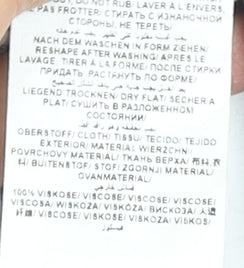 OUT, DO NOT RUB: LAVER À L'ENVERS,
NE PAS FROTTER/ СТИРАТЬ С ИЗНАНОЧНОЙ
СТОРОНЫ, НЕ ТЕРЕТЬ/
NACH DEM WASCHEN IN FORM ZIEHEN/
RESHAPE AFTER WASHING/ APRÈS LE
LAVAGE, TIRER À LA FORME/ ПОСЛЕ СТИРКИ
ПРИДАТЬ, РАСТЯНУТЬ ПО ФОРМЕ/
LIEGEND TROCKNEN/ DRY FLAT/ SÉCHER À
PLAT/ СУШИТЬ В РАЗЛОЖЕННОМ
СОСТОЯНИИ/
OBERSTOFF/ CLOTH/ TISSU/ TECIDO/ TEJIDO
EXTERIOR/ MATERIAL WIERZCHNI/
POVRCHOVÝ MATERIÁL/ ТКАНЬ ВЕРХА/ 布料
BUITENSTOF/ STOF/ ZGORNJI MATERIAL/
OVANMATERIAL/
قماش خارجي
100% VISKOSE/ VISCOSE/ VISCOSE/ VISCOSE/
VISCOSA/ WISKOZA/ VISKÓZA/ ВИСКОЗА/ 人造
VISCOSE/ VISKOSE/ VISKOZA/ VISKOS/
فيسكوز